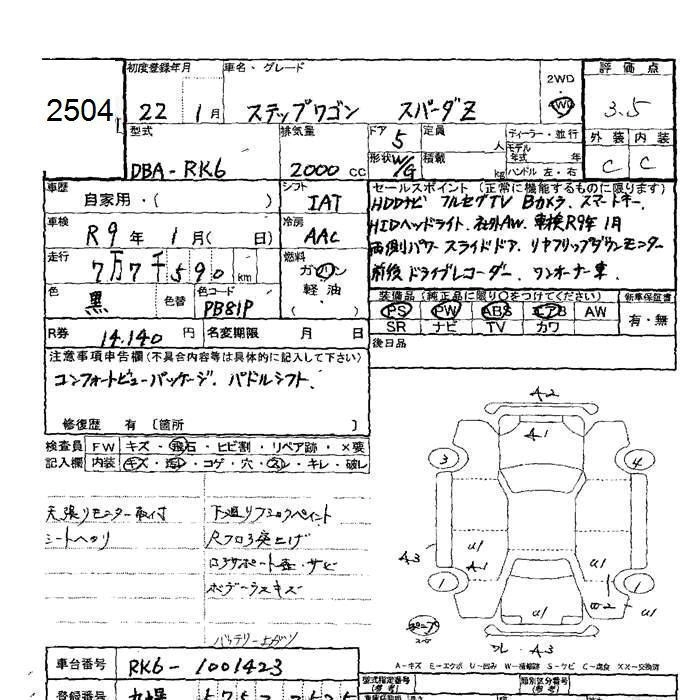 2504
初度登録年月 車名・グレード 2WD 評価点
22 1月 ステップワゴン スパーダZ 4WD 3.5
型式 排気量 ドア 5 定員 人 ディーラー・並行 外装 内装
DBA-RK6 2000 CC 形状 W/G 積載 kg モデル年式 年 ハンドル 左・右 C C
車歴 シフト セールスポイント (正常に機能するものに限ります)
自家用・( ) IAT HDDナビ フルセグTV Bカメラ. スマートキー.
車検 冷房 HIDヘッドライト. 社外AW. 車検R9年1月
R9年 1月( 日) AAC 両側パワースライドドア. リヤフリップダウンモニター
走行 燃料 前後ドライブレコーダー. ワンオーナー車.
7万7千590km ガソリン
色 色替 色コード 軽油 装備品 (純正品に限り○をつけてください) 新車保証書
黒 PB81P ( ) PS PW ABS エアB AW 有・無
SR ナビ TV カワ
R券 14.140円 名変期限 月 日 後日品
注意事項申告欄(不具合内容等は具体的に記入して下さい)
コンフォートビューパッケージ. パドルシフト.
修復歴 有 〔箇所 〕
検査員 FW キズ・飛石・ヒビ割・リペア跡・×要
記入欄 内装 キズ・汚レ・コゲ・穴・スレ・キレ・破レ
天張りモニター取付
シートヘタリ
下廻り
Rフロア突上げ
サビ
ボデー
A2
A1
3 4
A3 U1 A1 U1
1 1
W2
U1 U1
A3
A-キズ E-エクボ U-凹み W-補修跡 S-サビ C-腐食 XX-交換済
車台番号 RK6-1001423
型式指定番号 類別区分番号
登録番号